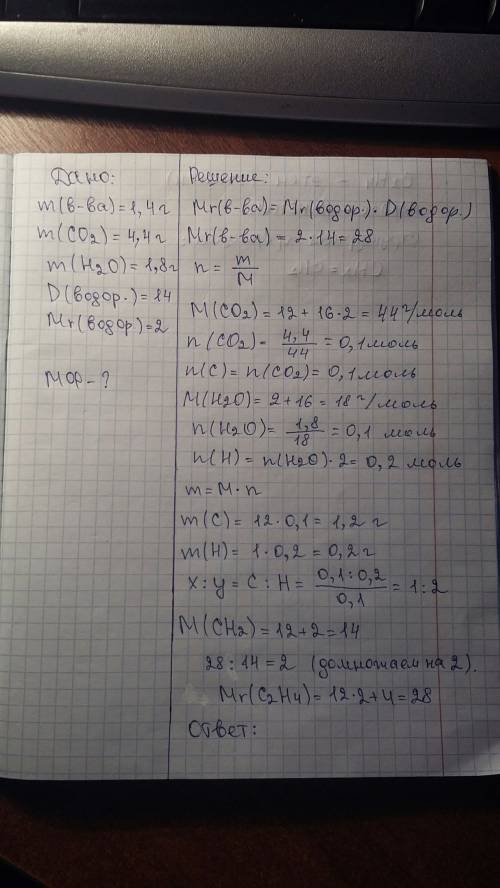 Дано:
m(в-ва)=1,4г
m(CO2)=4,4г
m(H2O)=1,8г
D(водор.)=14
Mr(водор)=2
МФ-?
Решение:
Mr(в-ва)=Mr(водор.)·D(водор.)
Mr(в-ва)=2·14=28
n=m/M
M(CO2)=12+16·2=44г/моль
n(CO2)=4,4/44=0,1моль
n(C)=n(CO2)=0,1моль
M(H2O)=2+16=18г/моль
n(H2O)=1,8/18=0,1 моль
n(H)=n(H2O)·2=0,2 моль
m=M·n
m(C)=12·0,1=1,2 г
m(H)=1·0,2=0,2г
x:y=C:H=0,1:0,2/0,1=1:2
M(CH2)=12+2=14
28:14=2 (домножаем на 2).
Mr(C2H4)=12·2+4=28
Ответ: